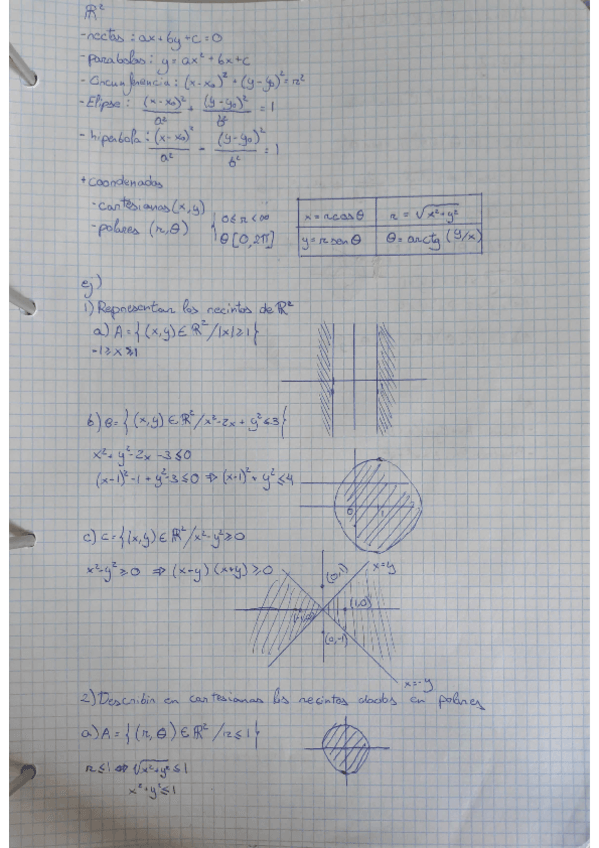 ℝ²
- rectas : ax+by+c=0
- parabolas : y=ax²+bx+c
- Circunferencia : (x-x₀)²+(y-y₀)²=r²
- Elipse : (x-x₀)²/a² + (y-y₀)²/b² = 1
- hiperbola : (x-x₀)²/a² - (y-y₀)²/b² = 1
+ coordenadas
- cartesianas (x,y)
- polares (r,θ) { 0≤r<∞
θ [0,2π]
x=rcosθ r=√x²+y²
y=rsenθ θ=arctg (y/x)
ej)
1) Representar los recintos de ℝ²
a) A={(x,y)∈ℝ²/|x|≥1}
-1≥x≥1
b) B={(x,y)∈ℝ²/x²-2x+y²≤3}
x²+y²-2x-3≤0
(x-1)²-1+y²-3≤0 ⇒ (x-1)²+y²≤4
0 1
c) C={(x,y)∈ℝ²/x²-y²≥0
x²-y²≥0 ⇒ (x-y)(x+y)≥0
(0,1)
x=y
(1,0)
(-1,0)
(0,-1)
x=-y
2) Describir en cartesianas los recintos dados en polares
a) A={(r,θ)∈ℝ²/r≤1}
r≤1 ⇔ √x²+y²≤1
x²+y²≤1